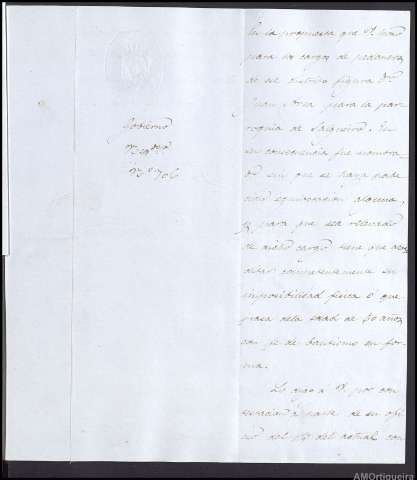 Gobierno
Neg.do
N.o 706
En la propuesta que V. hizo
para los cargos de pedaneos
de ese distrito figura D.n
Juan para la par
roquia de
su consecuencia fue nombra
do sin que se haya pade
cido equivocacion alguna,
y para que sea relevado
de dicho cargo tiene que acre
ditar competentemente su
imposibilidad fisica ó que
pasa de la edad de 60 años
con fe de bautismo en for
ma.
Lo digo a V. por con
testacion á parte de su ofi
cio del 18 del actual con
AMOrtigueira